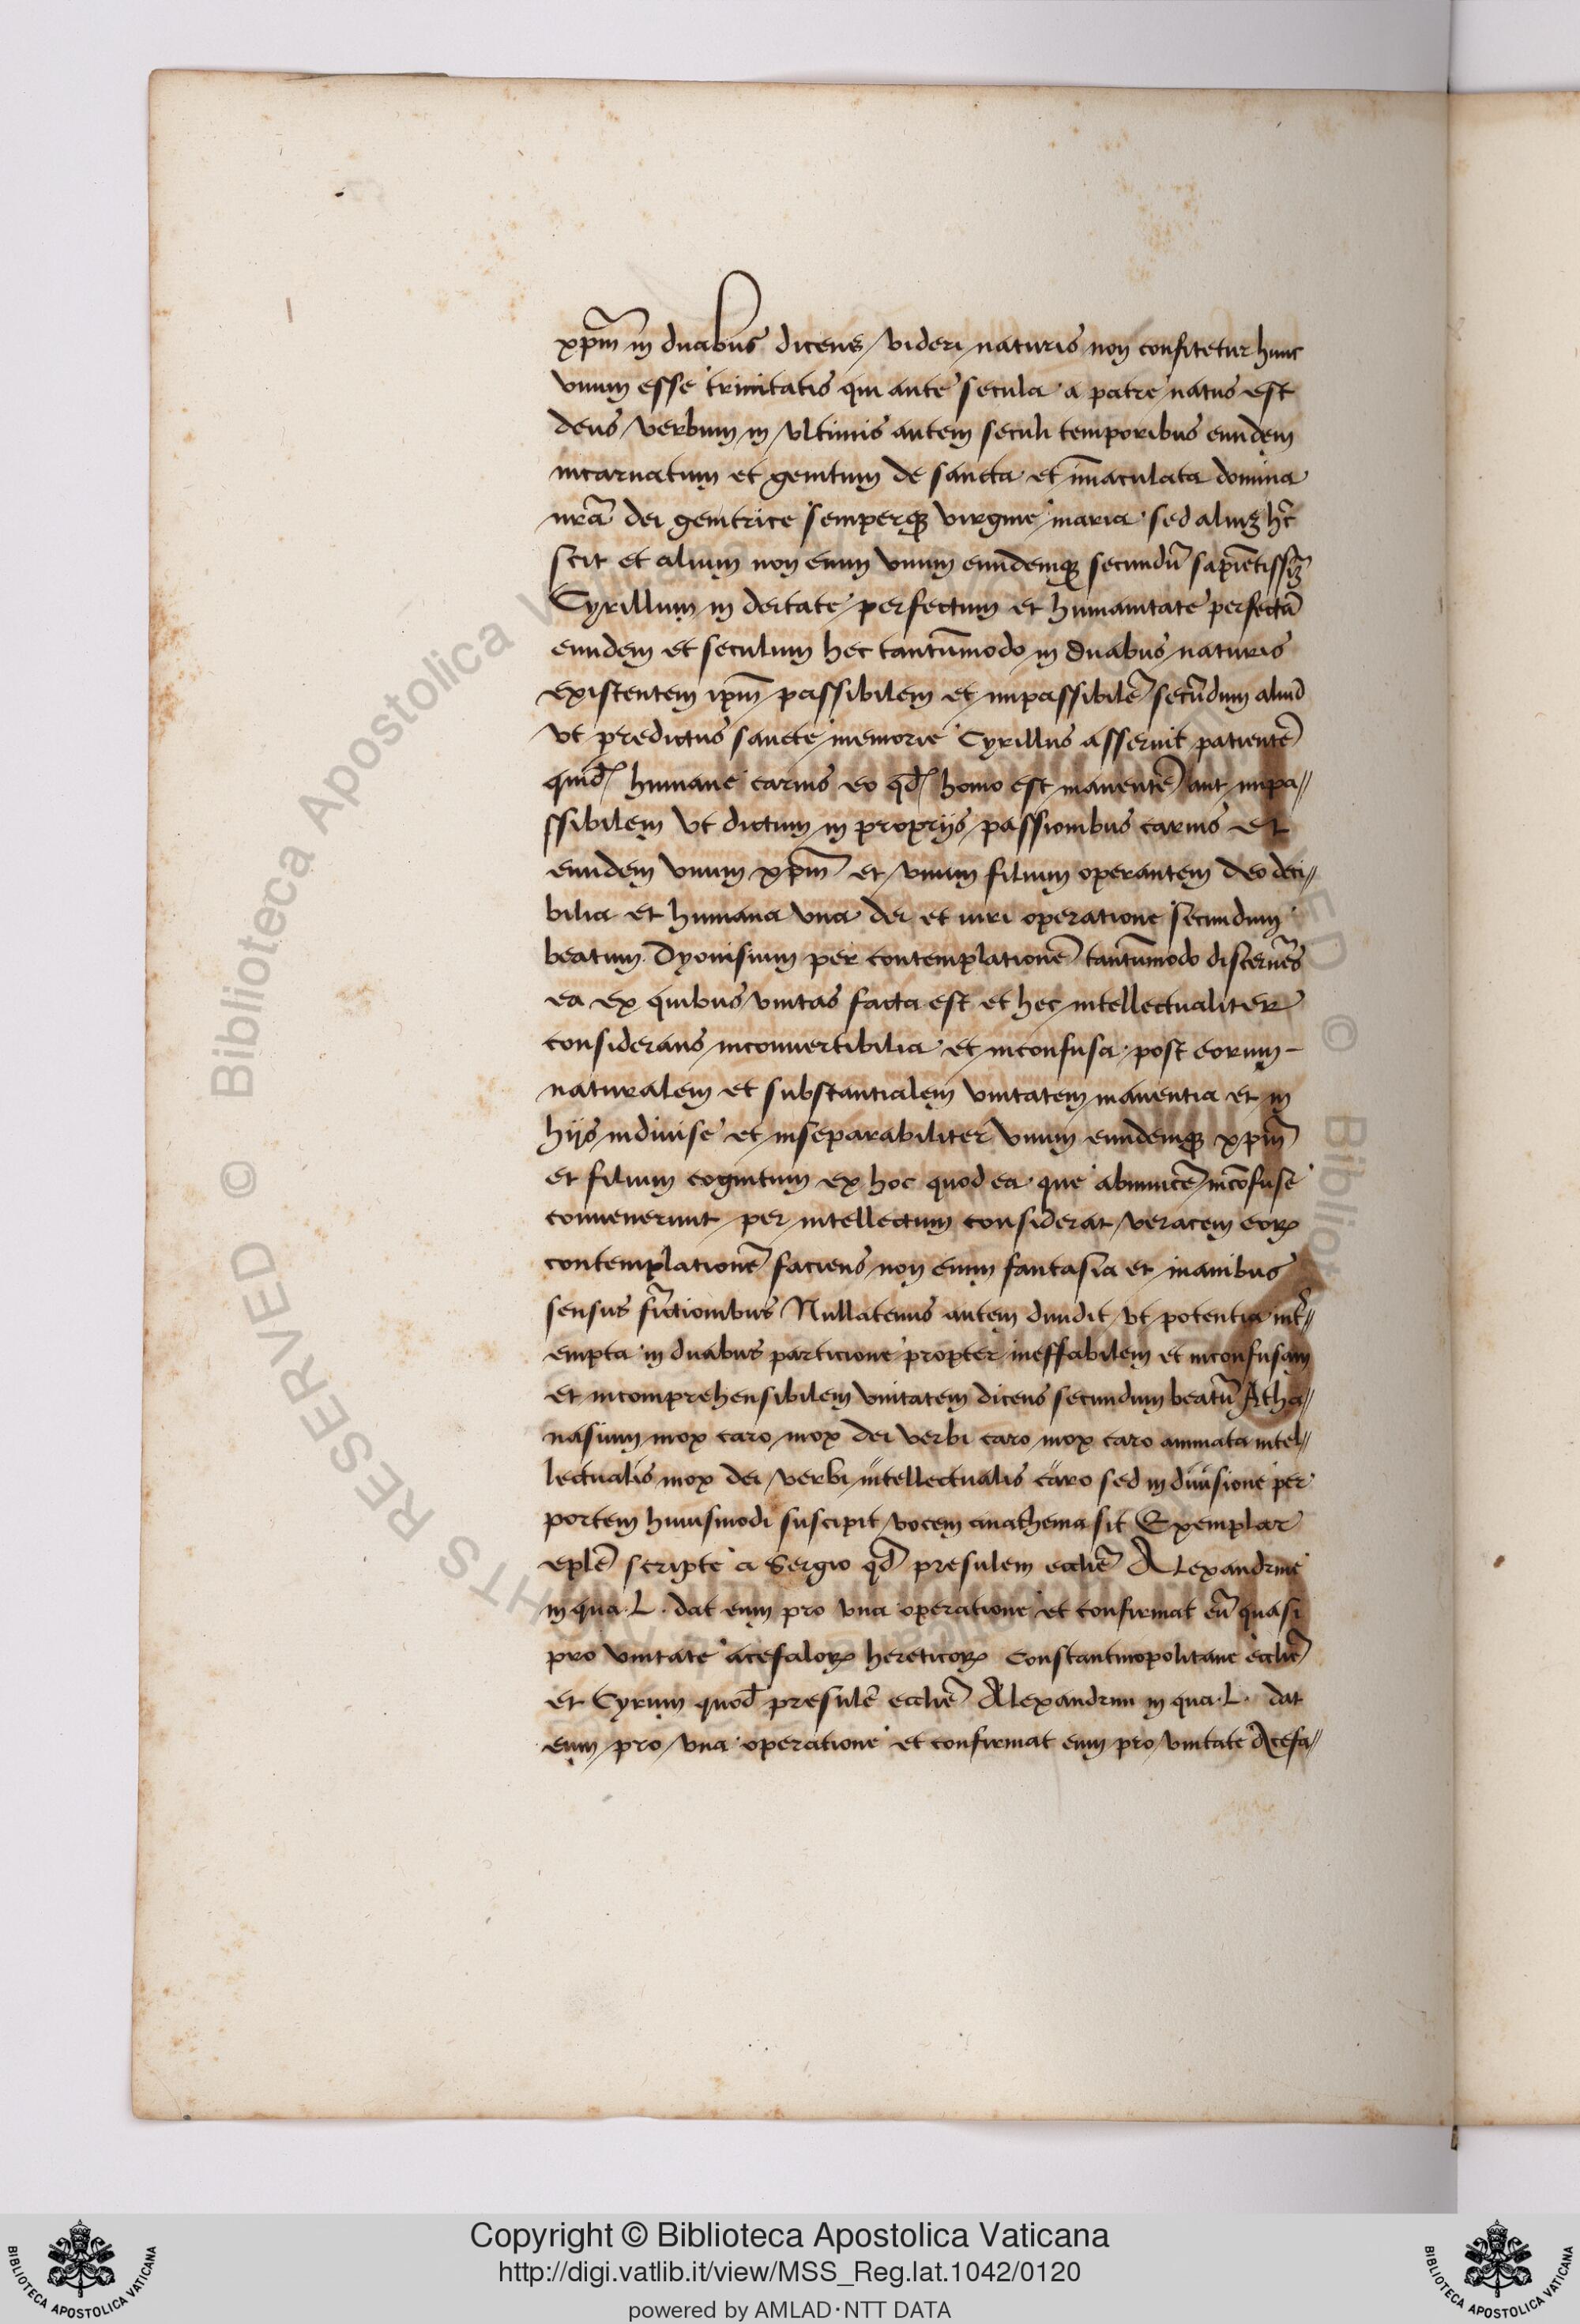 xp̄m in duabus dicens videri naturis non confitetur hunc
vnum esse trinitatis qui ante secula a patre natus est
deus verbum in vltimis autem seculi temporibus eundem
incarnatum et genitum de sancta et īmaculata domina
nr̄a dei genitrice semperqꝫ virgine maria sed aliuꝫ hc̄
scit et alium non enim vnum eundemqꝫ secundū sapiētissīꝫ
Cyrillum in deitate perfectum et humanitate perfectū
eundem et seculum hec tantūmodo in duabus naturis
existentem ip̄m passibilem et impassibilē secūdum aliud
vt predictus sancte memorie Cyrillus asseruit patientē
quid̄ humane carnis eo qd̄ homo est manentē aut impa//
ssibilem vt dictum in proprijs passionibus carnis et
eundem vnum xp̄m et vnum filium operantem deo deci//
bilia et humana vna dei et viri operatione secundum
beatum Dyonisium per contemplationē tantūmodo discernēs
ea ex quibus vnitas facta est et hec intellectualiter
considerans inconuertibilia et inconfusa post eorum –
naturalem et substantialem vnitatem manentia et in
hijs indiuise et inseparabiliter vnum eundemqꝫ xp̄m
et filium cognitum ex hoc quod ea que abinuicē incōfuse
conuenerunt per intellectum considerat veracem eoꝝ
contemplationē faciens non enim fantasia et inanibus
sensus fictionibus Nullatenus autem diuidit vt potentia int̄//
empta in duabus particione propter ineffabilem et inconfusam
et incomprehensibilem vnitatem dicens secundum beatū Atha//
nasium mox caro mox dei verbi caro mox caro animata intel//
lectualis mox dei verbi intellectualis caro sed in diuisione per
portem huiusmodi suscipit vocem anathema sit Exemplar
eplē scripte a Sergio qd̄ presulem ecclīe Alexandrine
in qua .L. dat eum pro vna operatione et confirmat eū quasi
pro vnitate acefaloꝝ hereticoꝝ Constantinopolitane ecclīe
et Cyrum quod̄ presulē ecclīe Alexandrin in qua .L. dat
eum pro vna operatione et confirmat eum pro vnitate Acefa//
© Biblioteca Apostolica V
RESERVED
© Bibliot
Copyright © Biblioteca Apostolica Vaticana
http://digi.vatlib.it/view/MSS_Reg.lat.1042/0120
powered by AMLAD·NTT DATA
BIBLIOTECA APOSTOLICA VATICANA
BIBLIOTECA APOSTOLICA VATICANA